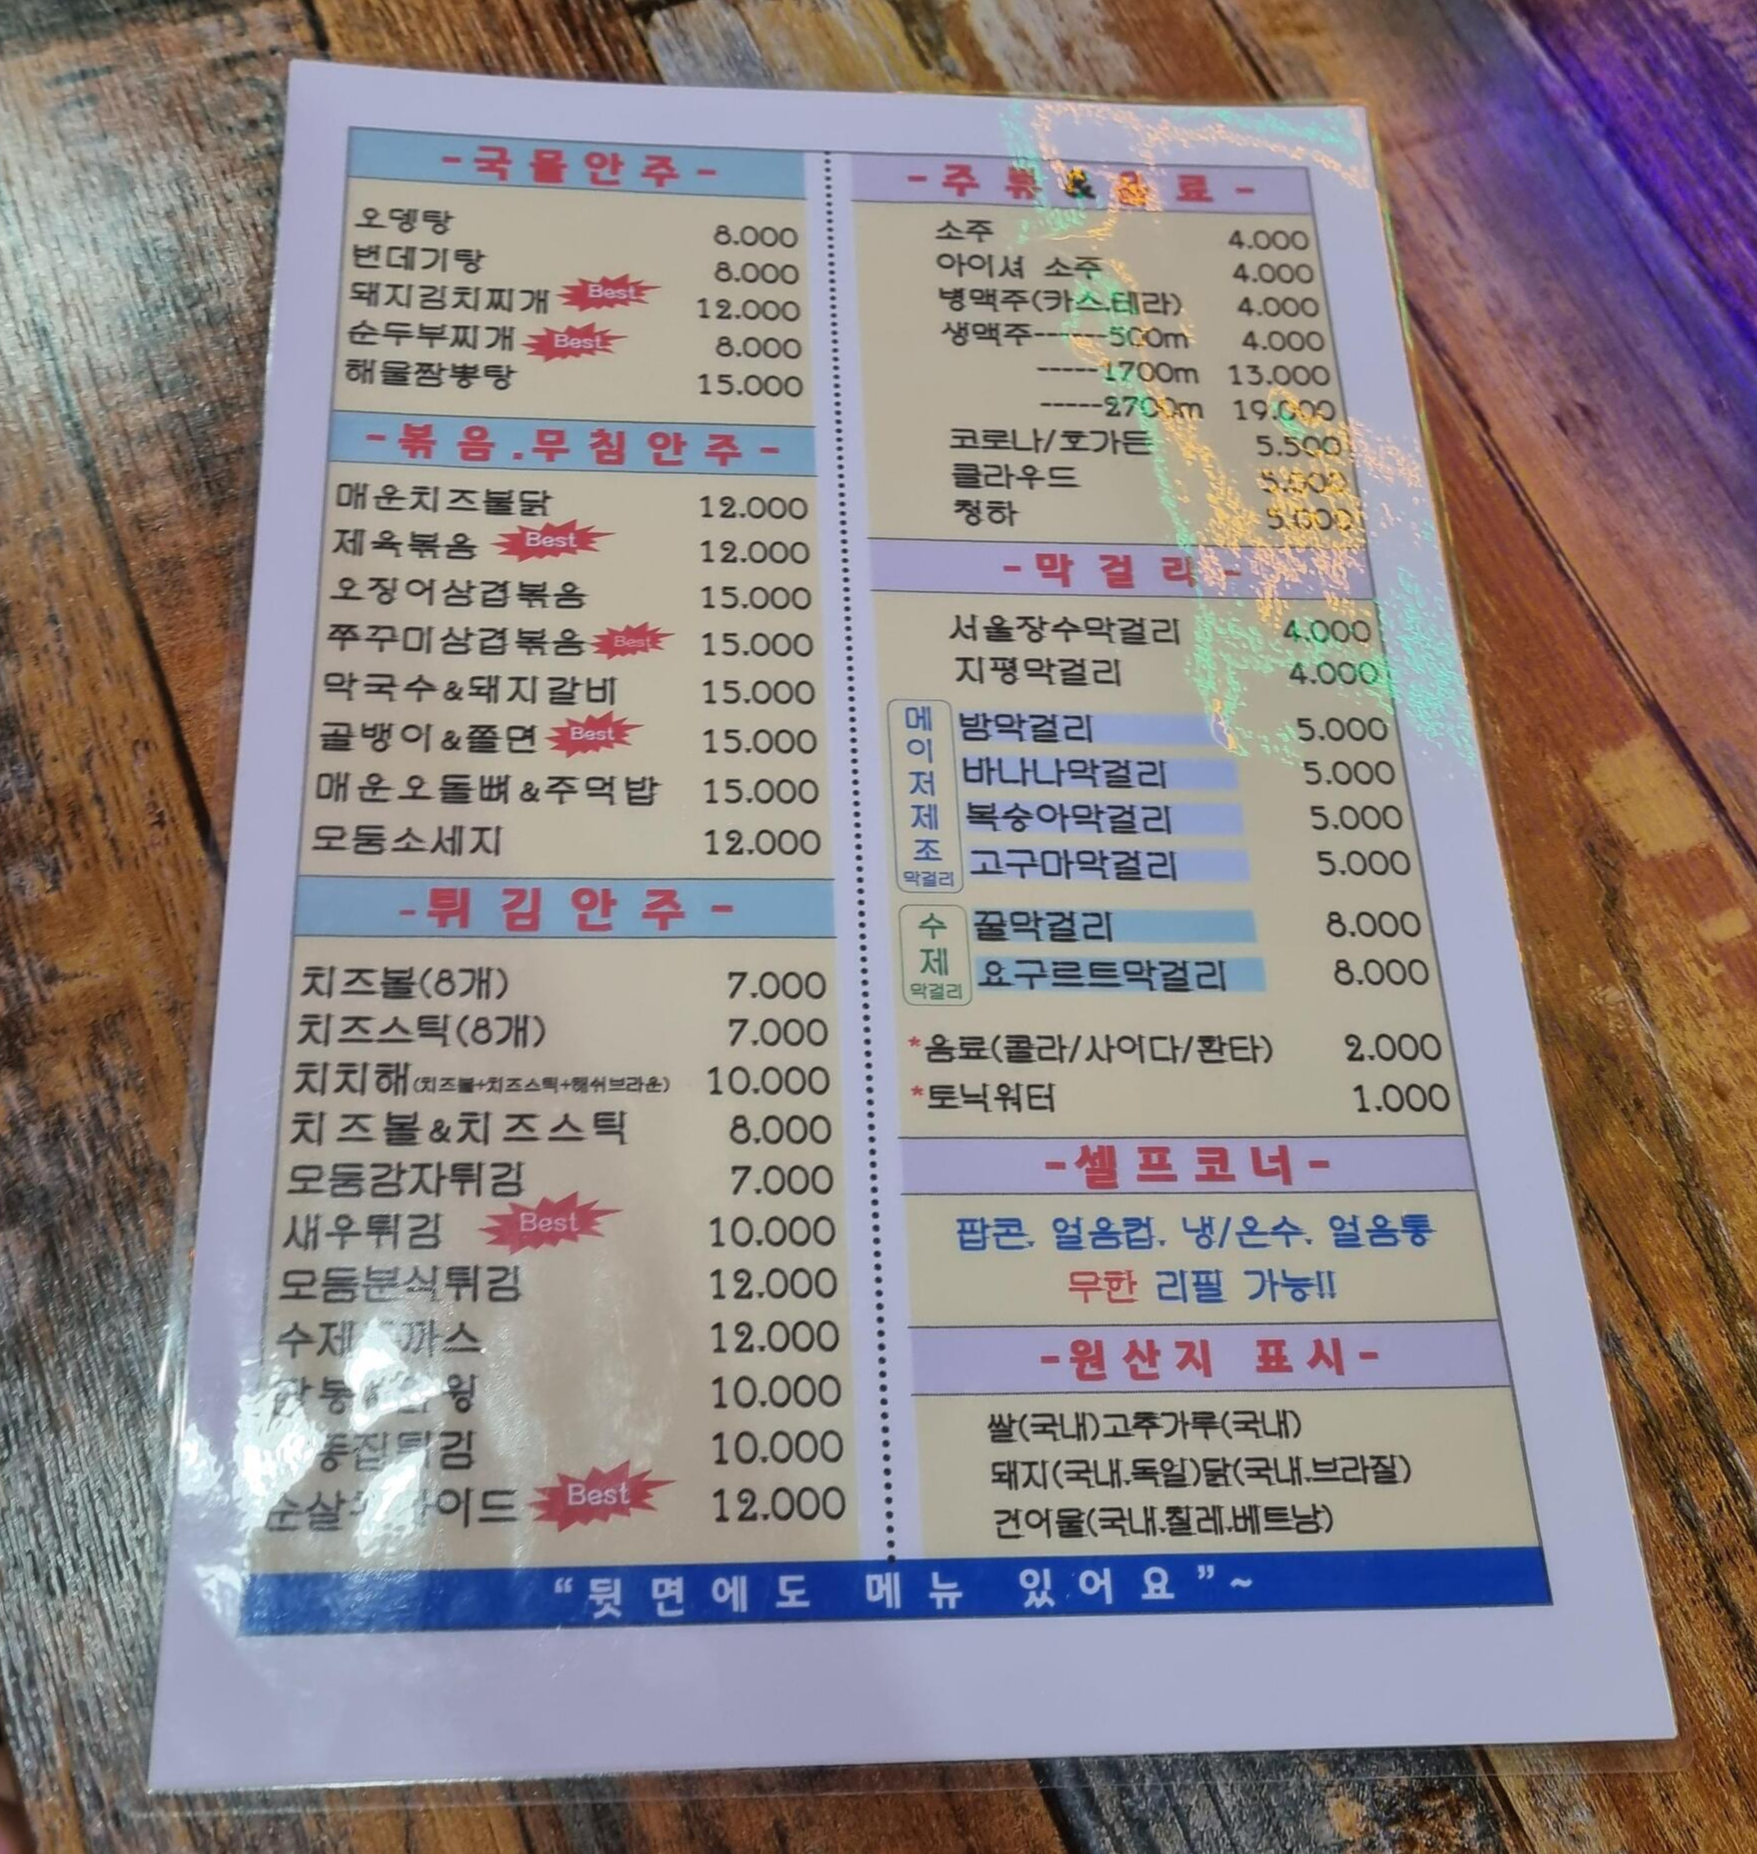 -국물안주-
오뎅탕 8.000
번데기탕 8.000
돼지김치찌개 Best 12.000
순두부찌개 Best 8.000
해물짬뽕탕 15.000
-볶음.무침안주-
매운치즈불닭 12.000
제육볶음 Best 12.000
오징어삼겹볶음 15.000
쭈꾸미삼겹볶음 Best 15.000
막국수&돼지갈비 15.000
골뱅이&쫄면 Best 15.000
매운오돌뼈&주먹밥 15.000
모둠소세지 12.000
-튀김안주-
치즈볼(8개) 7.000
치즈스틱(8개) 7.000
치치해(치즈볼+치즈스틱+해쉬브라운) 10.000
치즈볼&치즈스틱 8.000
모둠감자튀김 7.000
새우튀김 Best 10.000
모둠분식튀김 12.000
12.000
10.000
10.000
Best 12.000
-주류&음료-
소주 4.000
아이셔 소주 4.000
병맥주(카스.테라) 4.000
생맥주------500m 4.000
-----1700m 13.000
-----2700m 19.000
코로나/호가든 5.500
클라우드 5.000
청하 5.000
-막걸리-
서울장수막걸리 4.000
지평막걸리 4.000
메이저제조막걸리
밤막걸리 5.000
바나나막걸리 5.000
복숭아막걸리 5.000
고구마막걸리 5.000
수제막걸리
꿀막걸리 8.000
요구르트막걸리 8.000
*음료(콜라/사이다/환타) 2.000
*토닉워터 1.000
-셀프코너-
팝콘, 얼음컵, 냉/온수, 얼음통
무한 리필 가능!!
-원산지 표시-
쌀(국내)고추가루(국내)
돼지(국내.독일)닭(국내.브라질)
건어물(국내.칠레.베트남)
“뒷면에도 메뉴 있어요”~